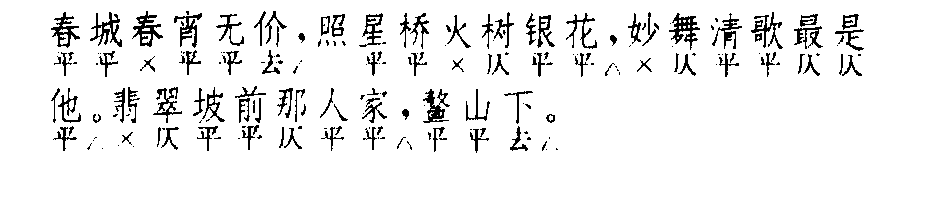 春城春宵无价，照星桥火树银花，妙舞清歌最是
平平×平平去△　平平×仄平平△×仄平平仄仄
他。翡翠坡前那人家，鳌山下。
平△×仄平平仄平平△平平去△